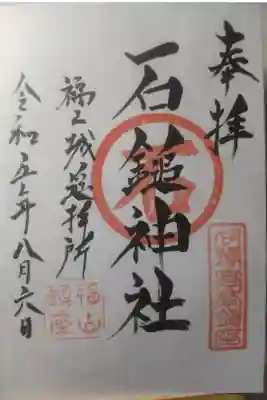 奉拝
石鎚神社
石
福山城遥拝所
福山鎮座
令和五年八月六日